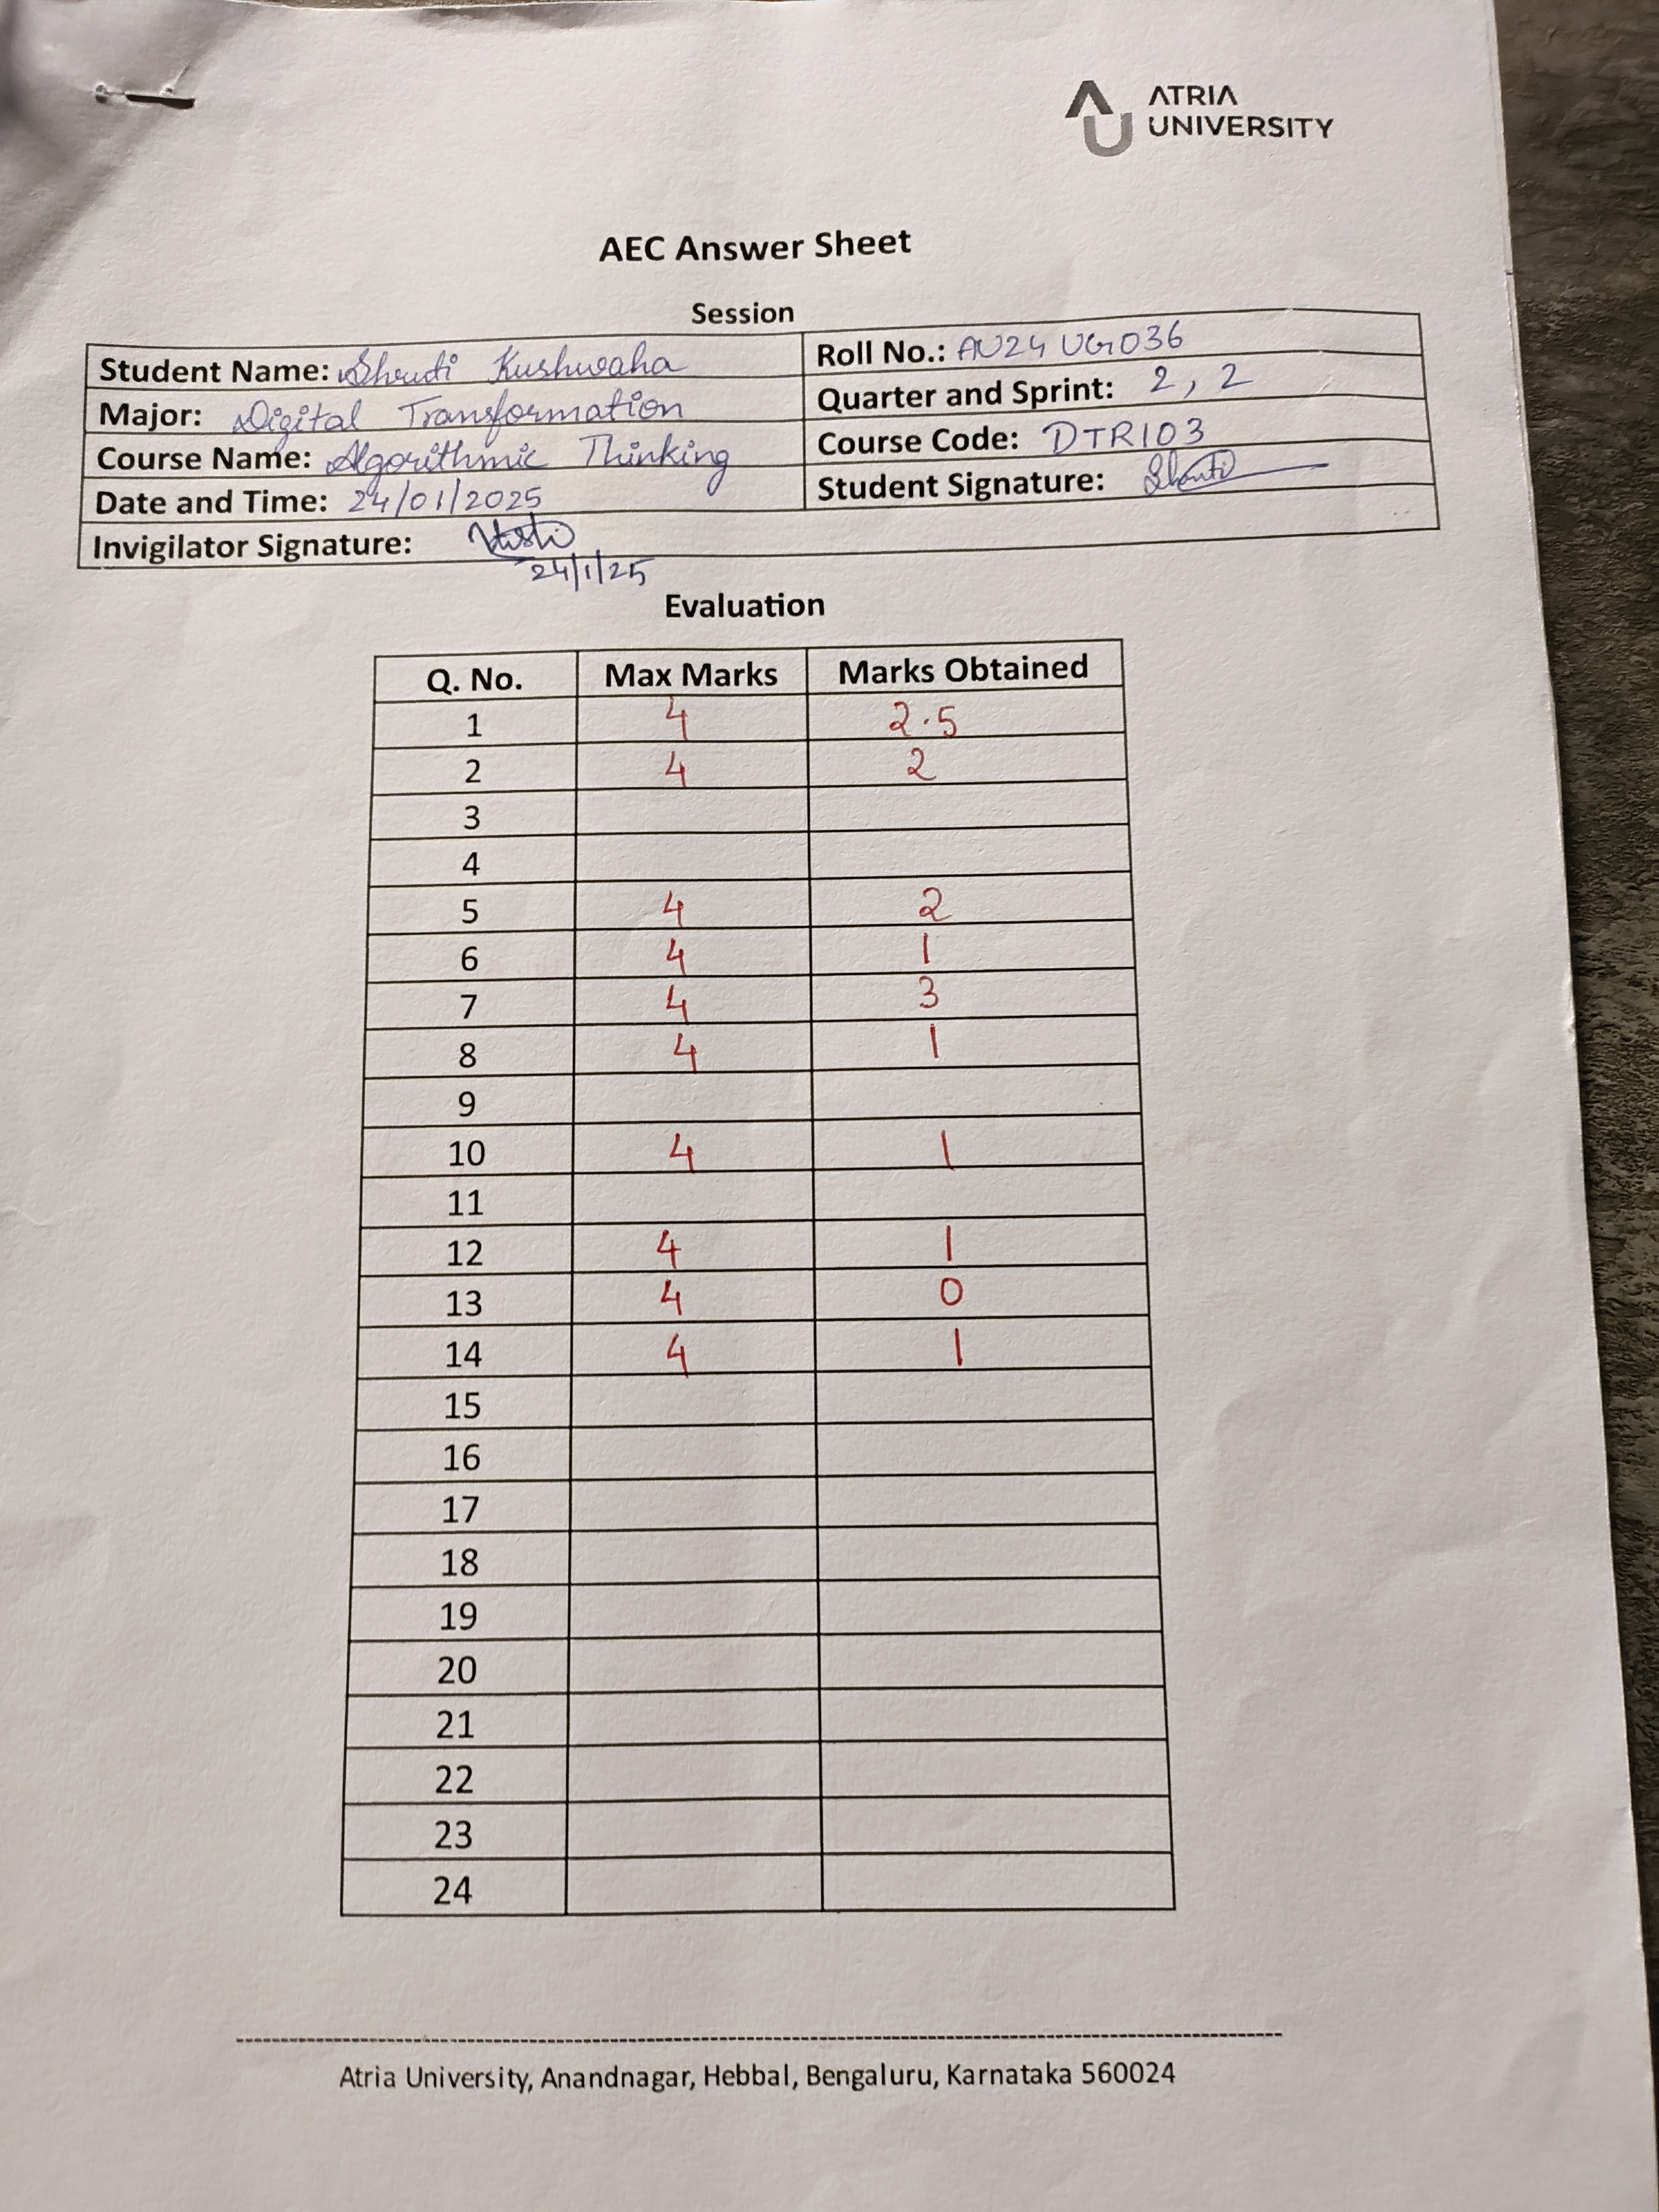 ATRIA
UNIVERSITY
AEC Answer Sheet
Session
Student Name: Shruti Kushwaha Roll No.: AU24 UG036
Major: Digital Transformation Quarter and Sprint: 2, 2
Course Name: Algorithmic Thinking Course Code: DTR103
Date and Time: 24/01/2025 Student Signature: Shruti
Invigilator Signature:
24/1/25
Evaluation
Q. No. Max Marks Marks Obtained
1 4 2.5
2 4 2
3
4
5 4 2
6 4 1
7 4 3
8 4 1
9
10 4 1
11
12 4 1
13 4 0
14 4 1
15
16
17
18
19
20
21
22
23
24
Atria University, Anandnagar, Hebbal, Bengaluru, Karnataka 560024